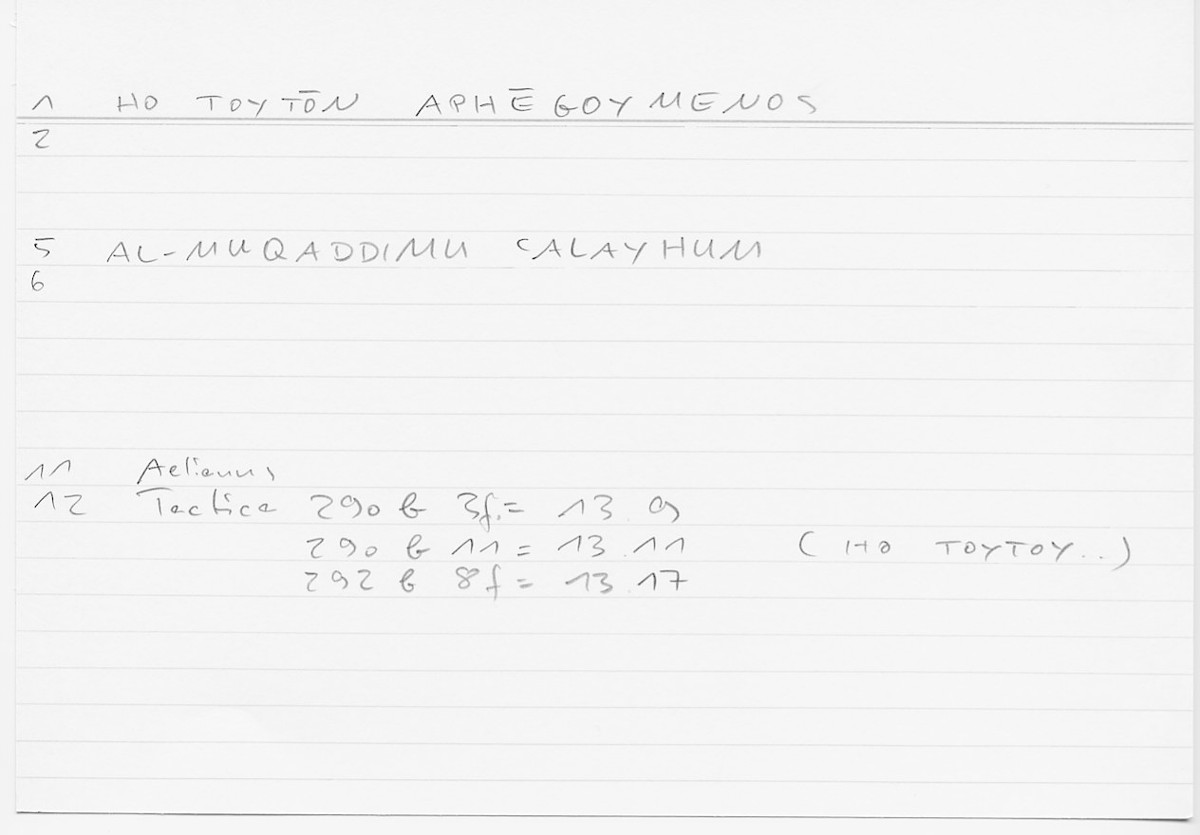 1 HO TOYTŌN APHĒGOYMENOS
2
5 AL-MUQADDIMU ʿALAYHUM
6
11 Aelianus
12 Tactica 290 b 3f.= 13.9
290 b 11 = 13.11 (HO TOYTOY..)
292 b 8f = 13.17